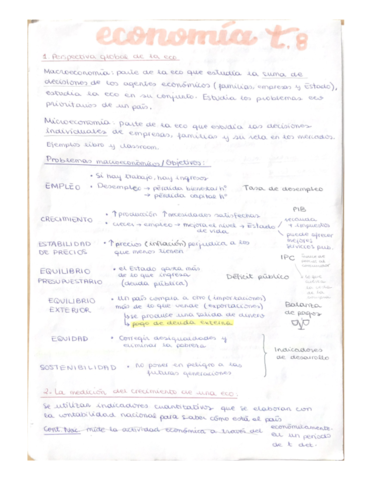 economía t.8
1. Perspectiva global de la eco.
Macroeconomía: parte de la eco que estudia la suma de
decisiones de los agentes económicos (familias, empresas y Estado),
estudia la eco en su conjunto. Estudia los problemas eco
prioritarios de un país.
Microeconomía: parte de la eco que estudia las decisiones
individuales de empresas, familias y su rela en los mercados.
Ejemplos libro y classroom.
Problemas macroeconómicos/Objetivos:
• Si hay trabajo, hay ingresos
EMPLEO • Desempleo → pérdida
→ pérdida capital hº
Tasa de desempleo
PIB
CRECIMIENTO • ↑ producción ↑ necesidades satisfechas
→ empleo → mejora el nivel → Estado
de vida
→ impuestos
puede
mejores
servicios
ESTABILIDAD DE PRECIOS • ↑ precios (inflación) perjudica a los
que menos tienen
IPC
EQUILIBRIO PRESUPUESTARIO • el Estado gasta más
de lo que ingresa
(deuda pública)
Déficit público
EQUILIBRIO EXTERIOR • Un país compra a otro (importaciones)
más de lo que vende (exportaciones)
se produce una salida de dinero
↳ pago de deuda externa
Balanza
de pagos
EQUIDAD • Corregir desigualdades y
la pobreza
Indicadores
de desarrollo
SOSTENIBILIDAD • No poner en peligro a las
futuras generaciones
2. La medición del crecimiento de una eco.
Se utilizan indicadores cuantitativos que se elaboran con
la contabilidad nacional para saber cómo está el país
Cont Nac: mide la actividad económica a través del
en un periodo
de t det.